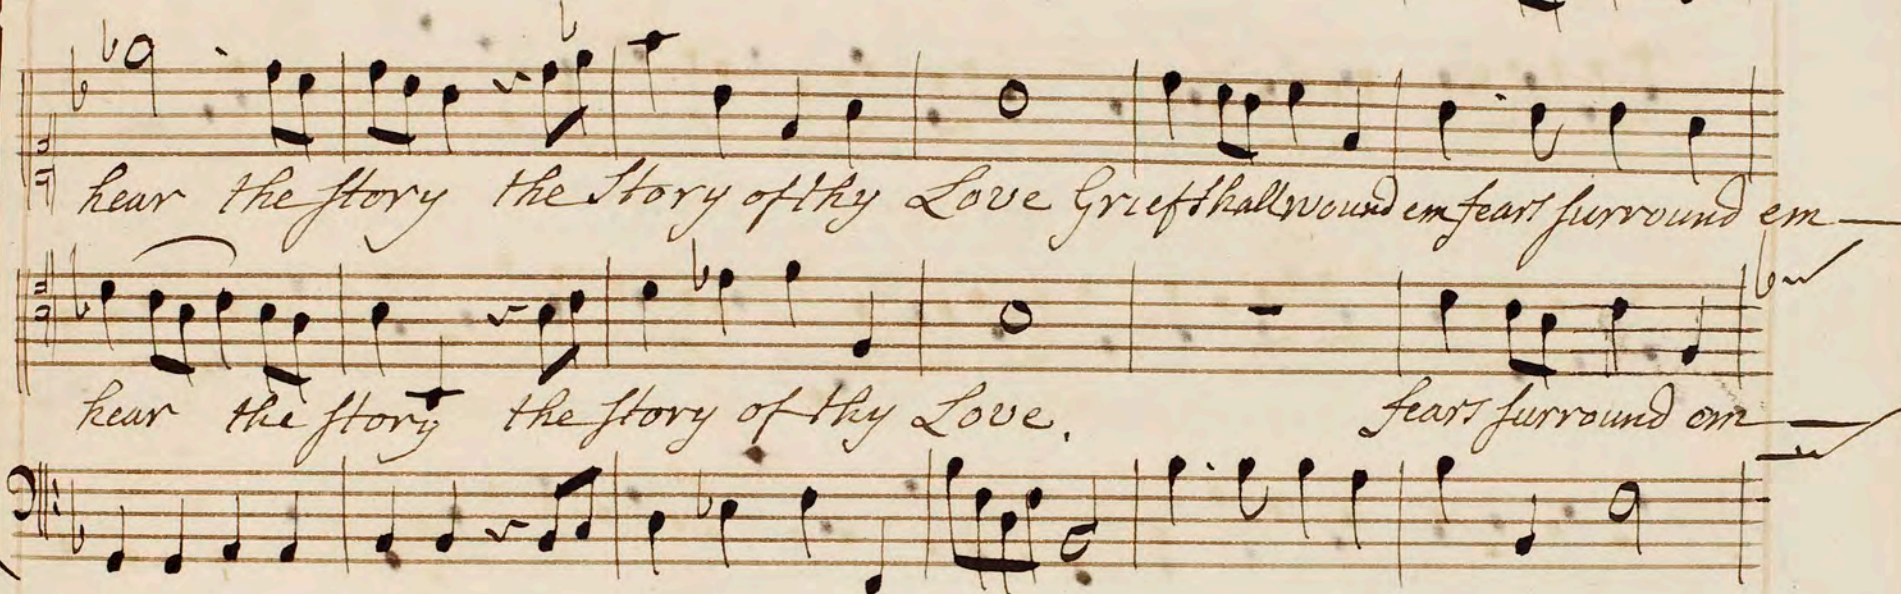 hear the story the Story of thy Love Grief shall wound em fears surround em
hear the story the story of thy Love.
fears surround em